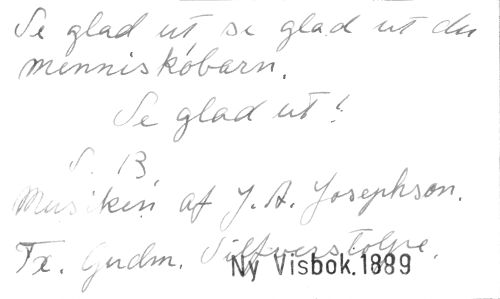 Se glad ut se glad ut du
menniskobarn.
Se glad ut!
S. 13
Musiken af J. A. Josephson.
Tx. Gudm. Silfverstolpe.
Ny Visbok. 1889